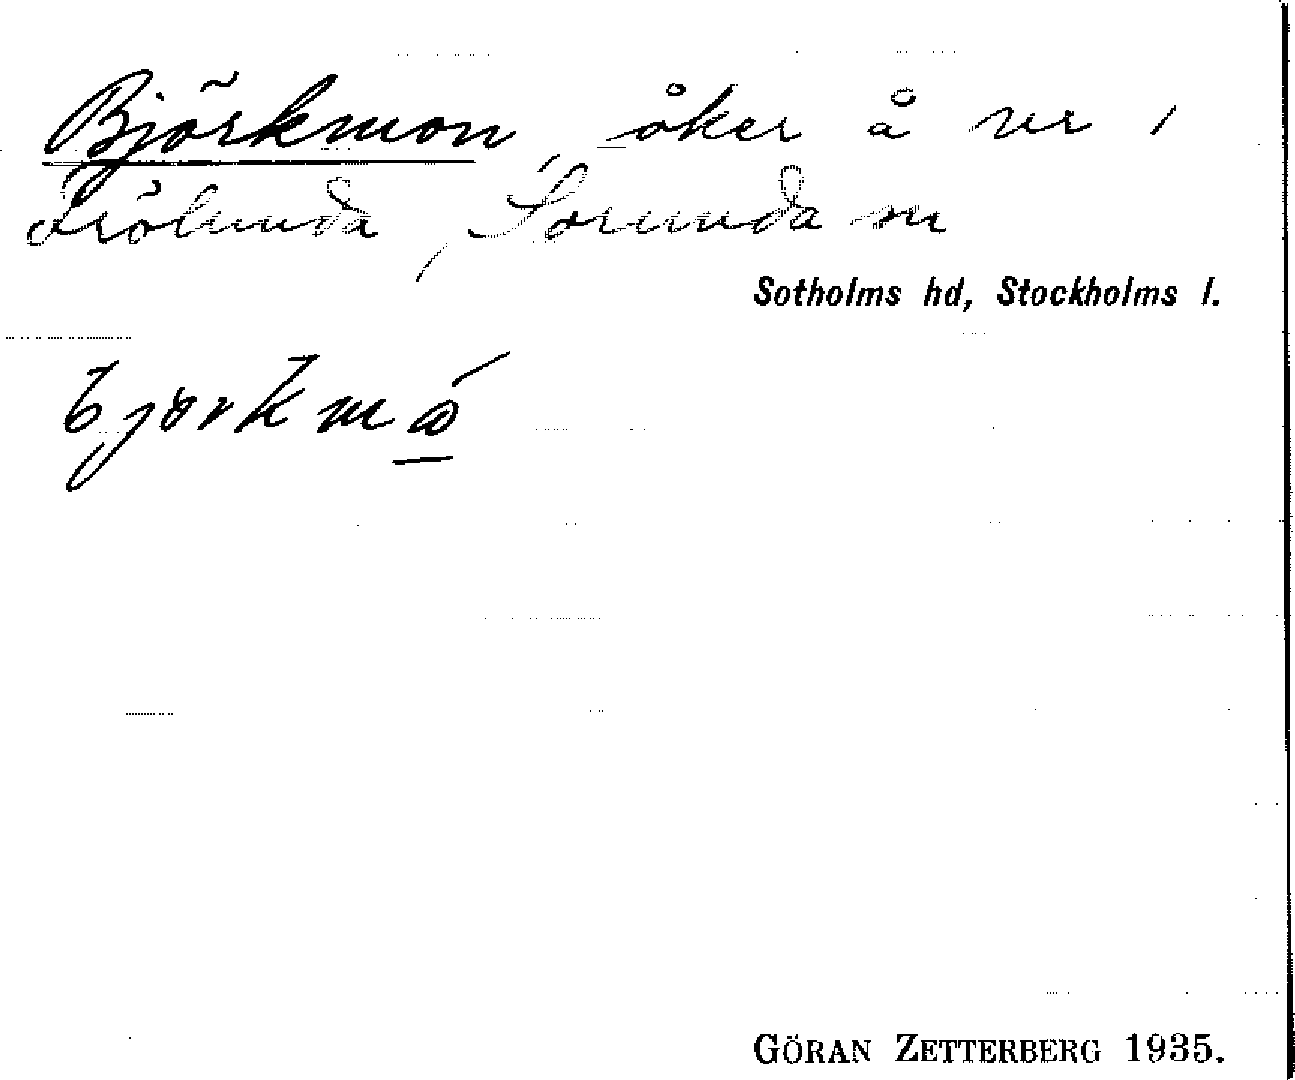 Björkmon, åker å nr 1
Frölunda, Sorunda sn
Sotholms hd, Stockholms l.
GÖRAN ZETTERBERG 1935.